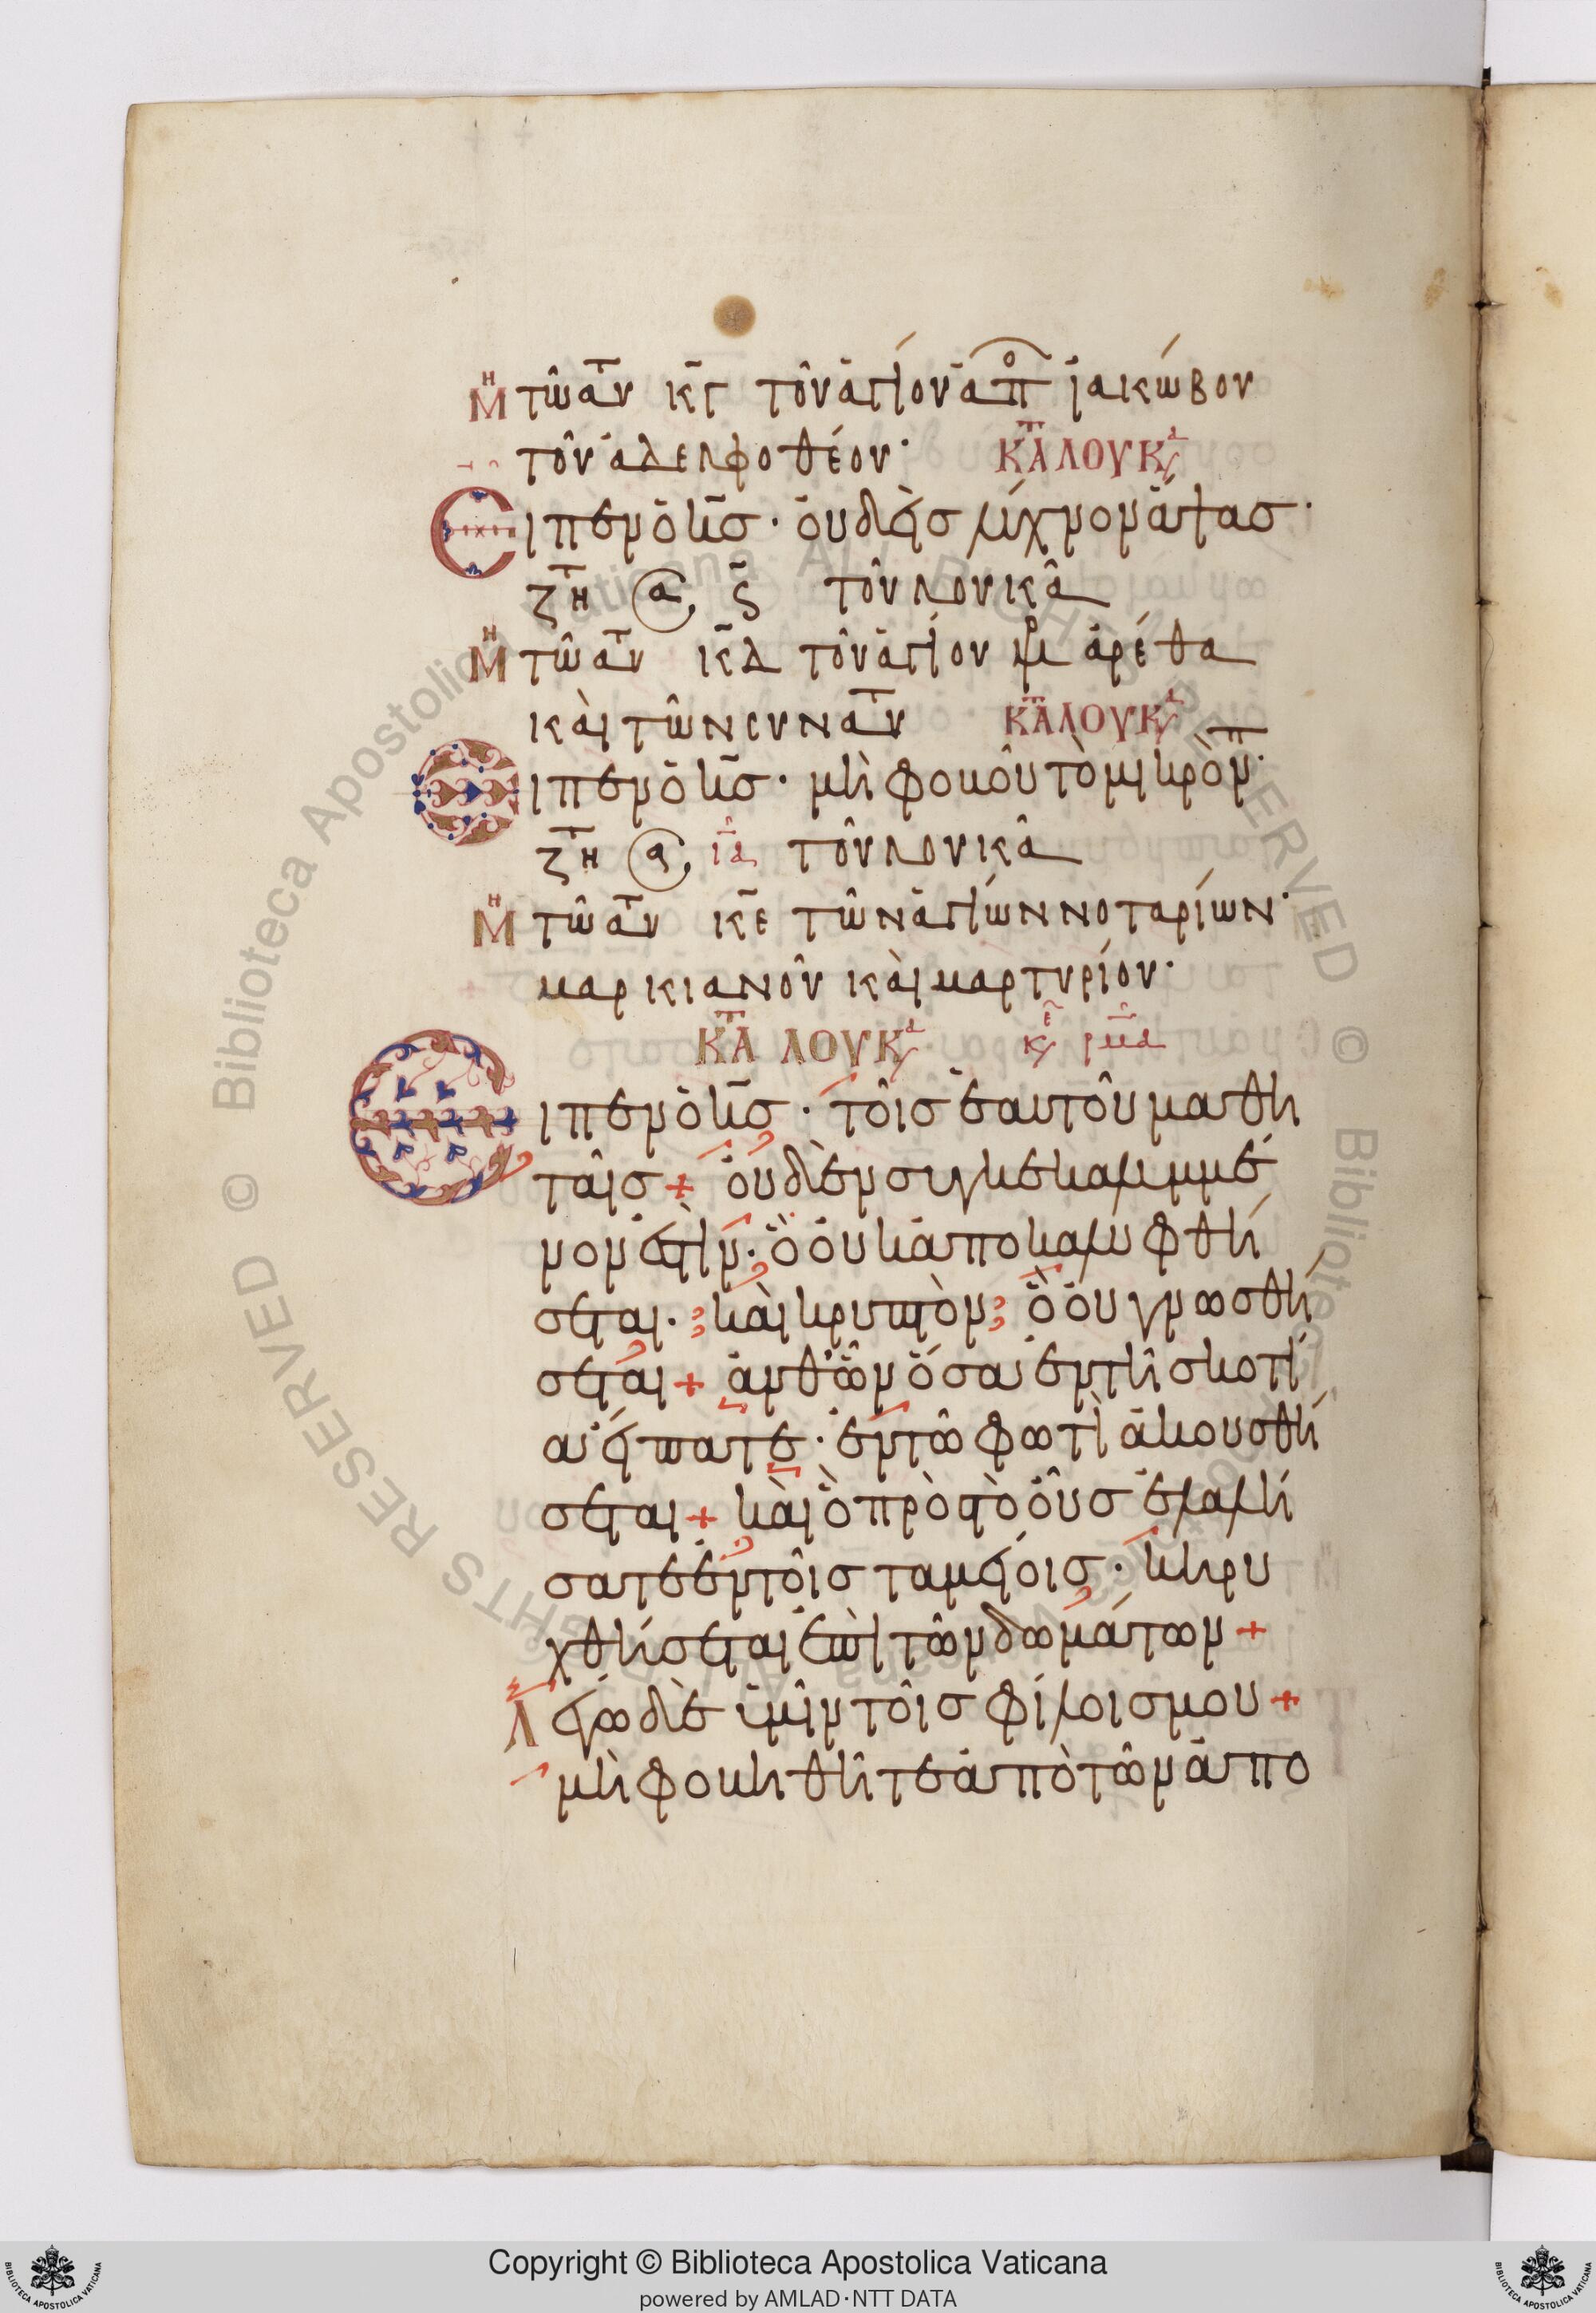 Μη τῶ αυτ κγ τοῦ ἁγίου ἀπο ἰακώβου
τοῦ ἀδελφοθέου· ΚΑΤΑ ΛΟΥΚ
Εἶπεν ὁ κς· οὐδεὶς λύχνον ἅψας·
ζητ η α ς τοῦ λουκᾶ
Μη τῶ αυτ κδ τοῦ ἁγίου μρ ἀρέθα
καὶ τῶν συν αυτ ΚΑΤΑ ΛΟΥΚ
Εἶπεν ὁ κς· μὴ φοβοῦ τὸ μικρὸν π·
ζητ η α ια τοῦ λουκᾶ
Μη τῶ αυτ κε τῶν ἁγίων νοταρίων·
μαρκιανοῦ καὶ μαρτυρίου·
ΚΑΤΑ ΛΟΥΚ κε ρμα
Εἶπεν ὁ κς· τοῖς ἑαυτοῦ μαθη
ταῖς + οὐδὲν συγκεκαλυμμέ
νον ἐστὶν· ὃ οὐκ ἀποκαλυφθή
σεται· καὶ κρυπτὸν ὃ οὐ γνωσθή
σεται + ἀνθ' ὧν ὅσα ἐν τῆ σκοτί
α εἴπατε· ἐν τῶ φωτὶ ἀκουσθή
σεται + καὶ ὃ πρὸς τὸ οὖς ἐλαλή
σατε ἐν τοῖς ταμείοις· κηρυ
χθήσεται ἐπὶ τῶν δωμάτων +
Λέγω δὲ ὑμῖν τοῖς φίλοις μου +
μὴ φοβηθῆτε ἀπὸ τῶν ἀπο
© Biblioteca Apostolica Vaticana ALL RIGHTS RESERVED
Copyright © Biblioteca Apostolica Vaticana
powered by AMLAD·NTT DATA
BIBLIOTECA APOSTOLICA VATICANA
BIBLIOTECA APOSTOLICA VATICANA